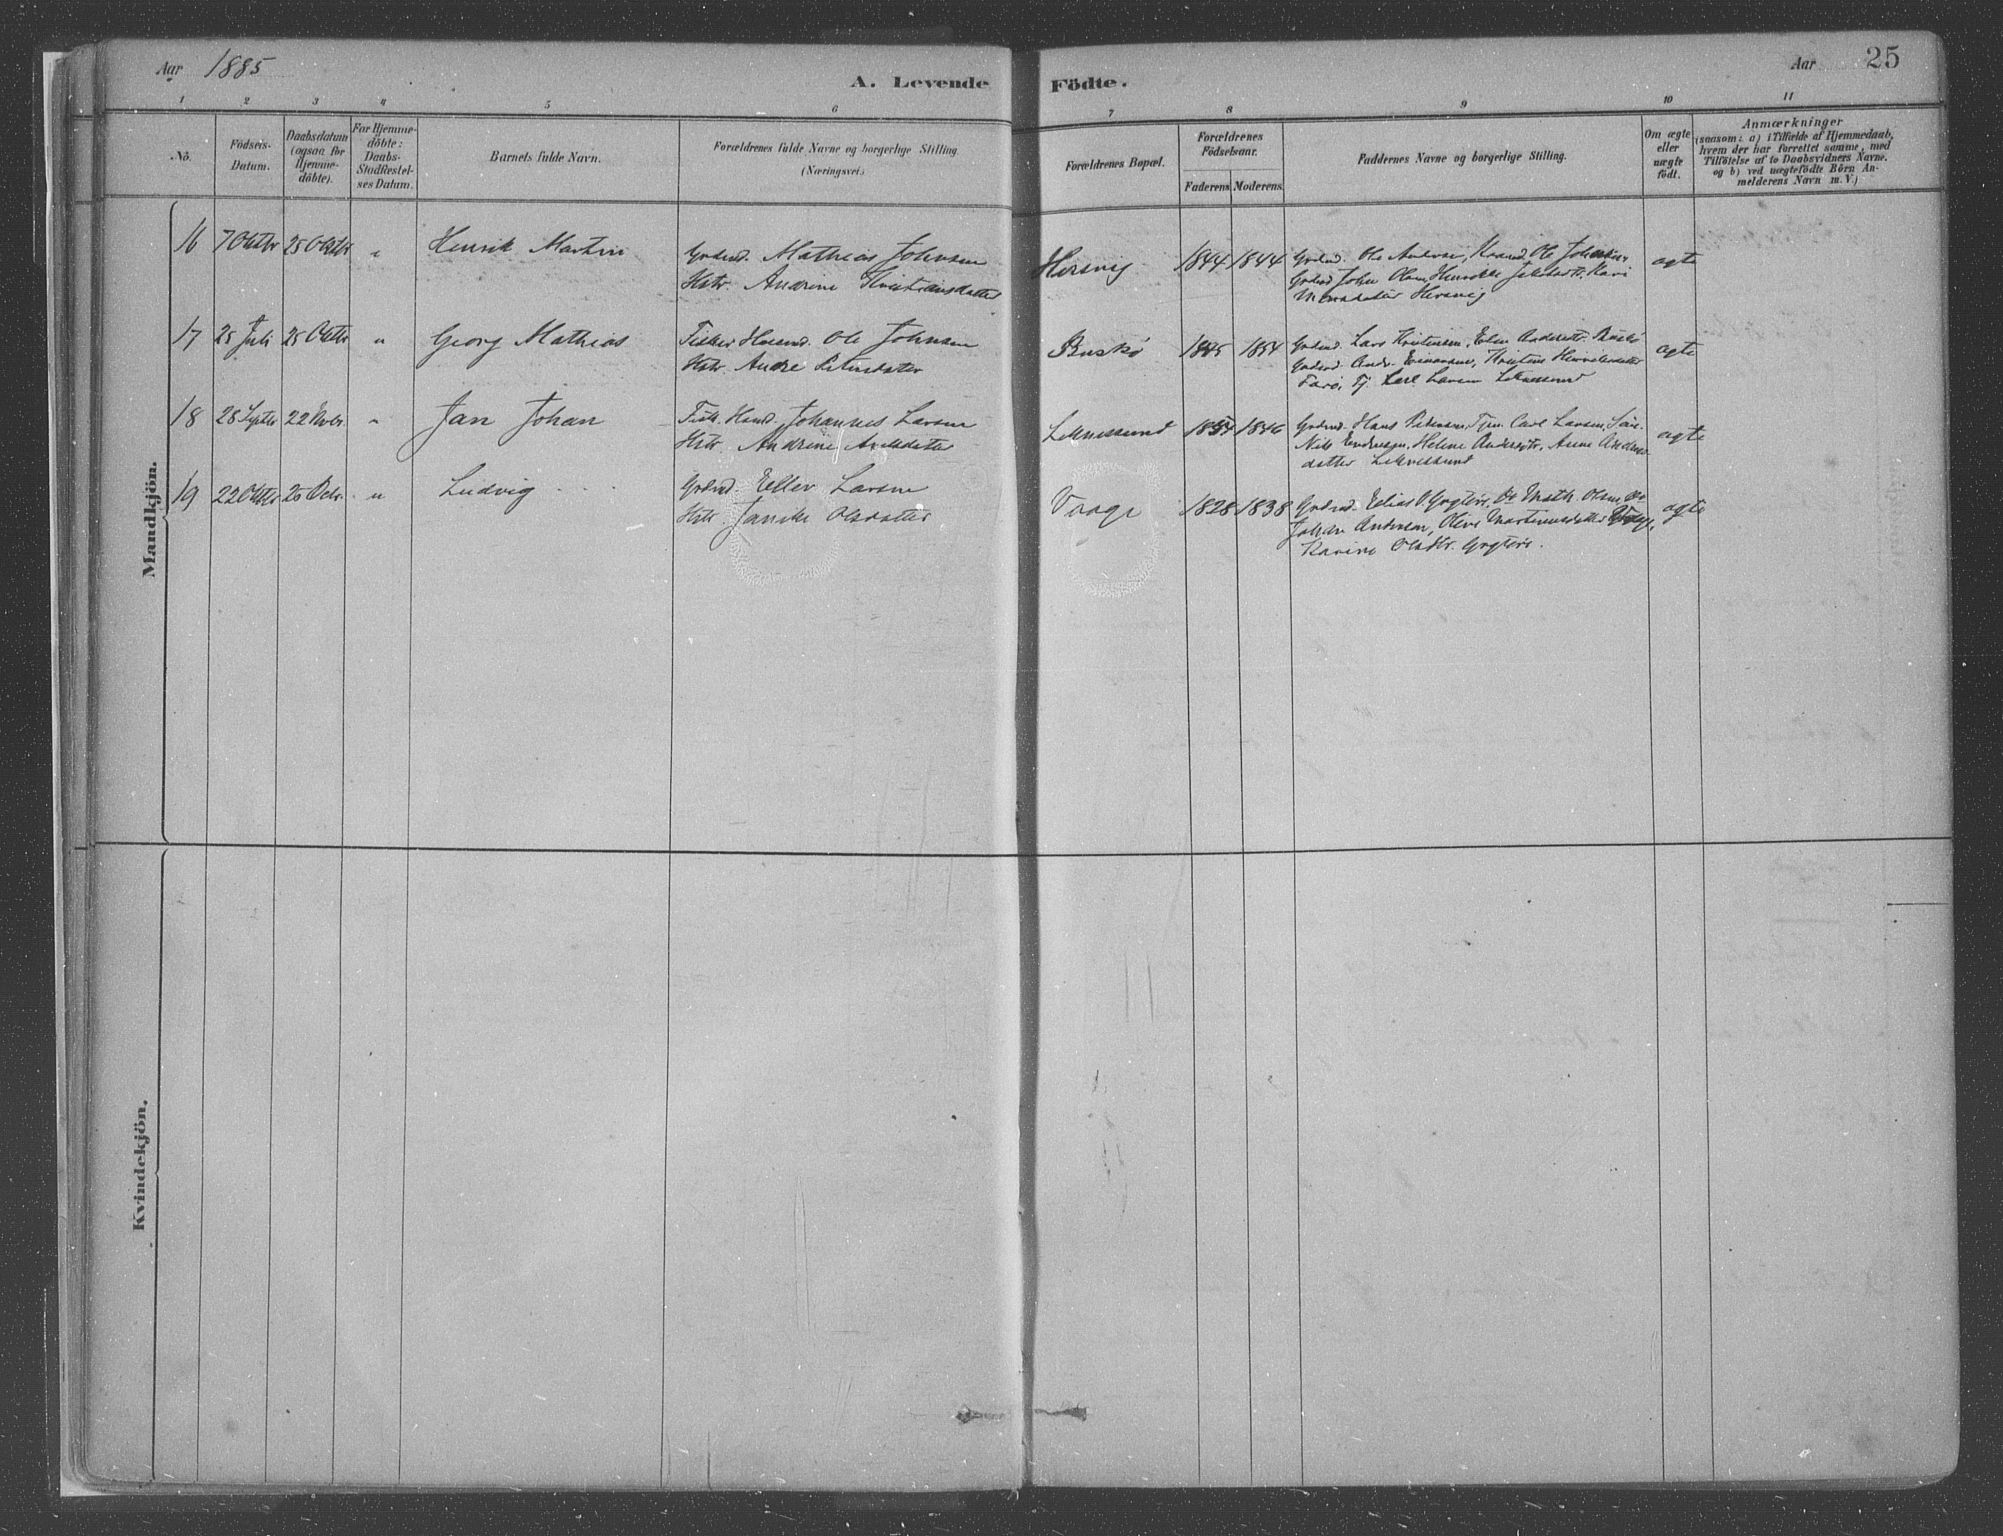 Aar 1885
A. Levende Födte.
Aar 25
1 2 3 4 5 6 7 8 9 10 11
No.
Födsels-
Datum.
Daabsdatum
(ogsaa for
Hjemme-
döbte).
For Hjemme-
döbte:
Daabs-
Stadfæstel-
ses Datum.
Barnets fulde Navn.
Forældrenes fulde Navne og borgerlige Stilling
(Næringsvei.)
Forældrenes Bopæl.
Forældrenes
Födselsaar.
Faderens Moderens.
Faddernes Navne og borgerlige Stilling.
Om ægte
eller
uægte
födt.
Anmærkninger
(saasom: a) i Tilfælde af Hjemmedaab,
hvem der har forrettet samme, med
Tilföielse af to Daabsvidners Navne.
og b) ved uægtefödte Börn An-
melderens Navn m. V.)
Mandkjön.
16 7 Oktbr 25 Oktbr " Henrik Martin
Grdmd. Mathias Johnsen
Hstr. Andrine Kristiansdatter
Hersvig 1844 1844
Grdmd. Ole Andersen, Ole Johannesen,
Grdmd John Olsen, Kari
Monsdatter Hersvig
ægte
17 25 Juli 25 Oktbr " Georg Mathias
Fisker Husmd. Ole Johnsen
Hstr. Andrea Petersdatter
Buskö 1845 1854
Grdmd. Lars Kristensen, Elen Andersdt. Buskö
Grdmd Andr. Kristine
Færö, Tj. Carl Larsen Leknessund
ægte
18 28 Septbr 22 Novbr. " Jan Johan
Fisk. Husmd. Johannes Larsen
Hstr. Andrine Axelsdatter
Leknessund 1854 1846
Grdmd. Hans Petersen, Tjen. Carl Larsen,
Nils Endresen, Helene Andersdtr, Anne Anders-
datter Leknessund
ægte
19 22 Oktbr 26 Decbr. " Ludvig
Grdmd. Eller Larsen
Hstr. Jansike Olsdatter
Vaage 1828 1838
Grdmd. Elias O. Gryteie, Do Math. Olsen, Do
Johan Andersen, Oline Martinusdatter Vaage,
Karine Olsdtr. Gryteie.
ægte
Kvindekjön.